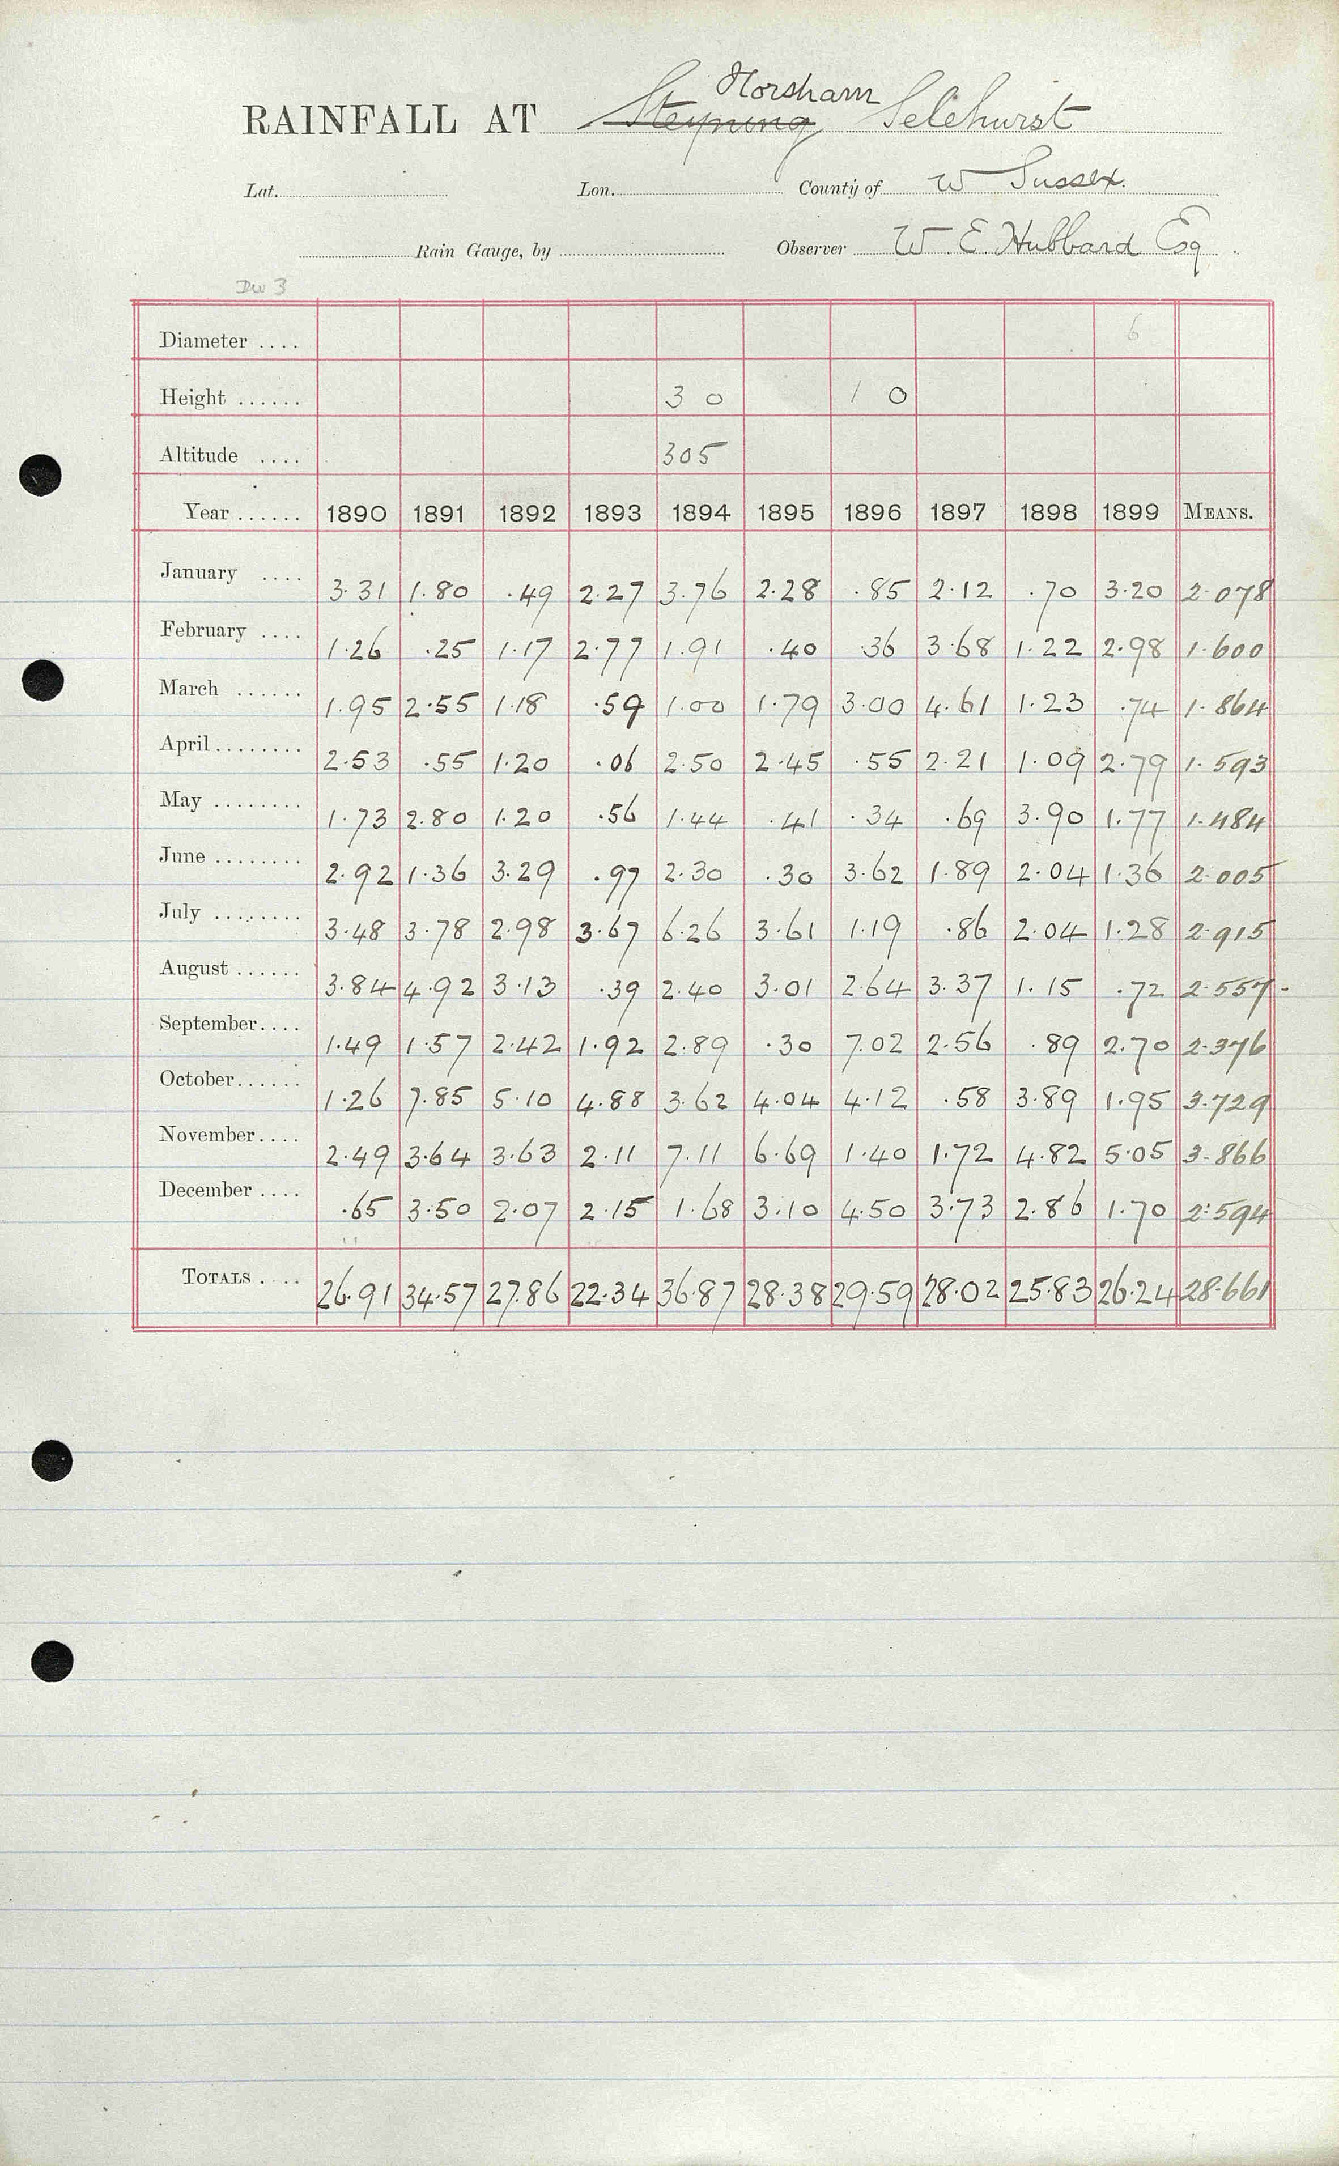 Horsham
RAINFALL AT Steyning Selehurst
Lat. Lon. County of W Sussex.
Rain Gauge, by Observer W. E. Hubbard Esq
DW 3
Diameter .... 6
Height ...... 3 0 1 0
Altitude .... 305
Year ...... 1890 1891 1892 1893 1894 1895 1896 1897 1898 1899 MEANS.
January .... 3.31 1.80 .49 2.27 3.76 2.28 .85 2.12 .70 3.20 2.078
February .... 1.26 .25 1.17 2.77 1.91 .40 .36 3.68 1.22 2.98 1.600
March ...... 1.95 2.55 1.18 .59 1.00 1.79 3.00 4.61 1.23 .74 1.864
April ........ 2.53 .55 1.20 .06 2.50 2.45 .55 2.21 1.09 2.79 1.593
May ........ 1.73 2.80 1.20 .56 1.44 .41 .34 .69 3.90 1.77 1.484
June ........ 2.92 1.36 3.29 .97 2.30 .30 3.62 1.89 2.04 1.36 2.005
July ........ 3.48 3.78 2.98 3.67 6.26 3.61 1.19 .86 2.04 1.28 2.915
August ...... 3.84 4.92 3.13 .39 2.40 3.01 2.64 3.37 1.15 .72 2.557-
September .... 1.49 1.57 2.42 1.92 2.89 .30 7.02 2.56 .89 2.70 2.376
October ...... 1.26 7.85 5.10 4.88 3.62 4.04 4.12 .58 3.89 1.95 3.729
November .... 2.49 3.64 3.63 2.11 7.11 6.69 1.40 1.72 4.82 5.05 3.866
December .... .65 3.50 2.07 2.15 1.68 3.10 4.50 3.73 2.86 1.70 2.594
TOTALS .... 26.91 34.57 27.86 22.34 36.87 28.38 29.59 28.02 25.83 26.24 28.661